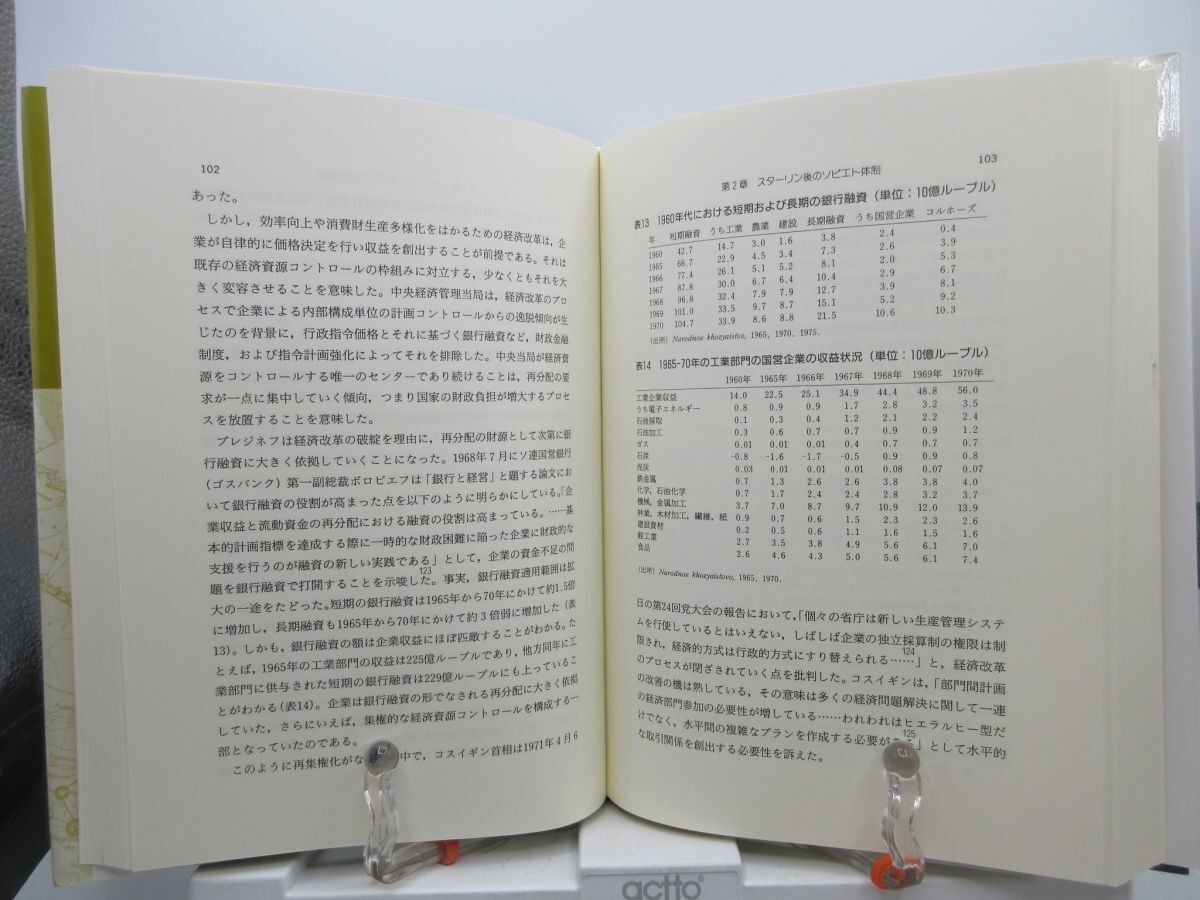 102
あった。
しかし，効率向上や消費財生産多様化をはかるための経済改革は，企
業が自律的に価格決定を行い収益を創出することが前提である。それは
既存の経済資源コントロールの枠組みに対立する，少なくともそれを大
きく変容させることを意味した。中央経済管理当局は，経済改革のプロ
セスで企業による内部構成単位の計画コントロールからの逸脱傾向が生
じたのを背景に，行政指令価格とそれに基づく銀行融資など，財政金融
制度，および指令計画強化によってそれを排除した。中央当局が経済資
源をコントロールする唯一のセンターであり続けることは，再分配の要
求が一点に集中していく傾向，つまり国家の財政負担が増大するプロセ
スを放置することを意味した。
ブレジネフは経済改革の破綻を理由に，再分配の財源として次第に銀
行融資に大きく依拠していくことになった。1968年７月にソ連国営銀行
（ゴスバンク）第一副総裁ボロビエフは「銀行と経営」と題する論文にお
いて銀行融資の役割が高まった点を以下のように明らかにしている。「企
業収益と流動資金の再分配における融資の役割は高まっている。……基
本的計画指標を達成する際に一時的な財政困難に陥った企業に財政的な
支援を行うのが融資の新しい実践である」として，企業の資金不足の問
題を銀行融資で打開することを示唆した。123 事実，銀行融資適用範囲は拡
大の一途をたどった。短期の銀行融資は1965年から70年にかけて約1.5倍
に増加し，長期融資も1965年から70年にかけて約３倍弱に増加した（表
13）。しかも，銀行融資の額は企業収益にほぼ匹敵することがわかる。た
とえば，1965年の工業部門の収益は225億ルーブルであり，他方同年に工
業部門に供与された短期の銀行融資は229億ルーブルにも上っているこ
とがわかる（表14）。企業は銀行融資の形でなされる再分配に大きく依拠
していた，さらにいえば，集権的な経済資源コントロールを構成する一
部となっていたのである。
このように再集権化がな 中で，コスイギン首相は1971年４月６
第２章 スターリン後のソビエト体制 103
表13 1960年代における短期および長期の銀行融資（単位：10億ルーブル）
年 短期融資 うち工業 農業 建設 長期融資 うち国営企業 コルホーズ
1960 42.7 14.7 3.0 1.6 3.8 2.4 0.4
1965 66.7 22.9 4.5 3.4 7.3 2.6 3.9
1966 77.4 26.1 5.1 5.2 8.1 2.0 5.3
1967 87.8 30.0 6.7 6.4 10.4 2.9 6.7
1968 96.8 32.4 7.9 7.9 12.7 3.9 8.1
1969 101.0 33.5 9.7 8.7 15.1 5.2 9.2
1970 104.7 33.9 8.6 8.8 21.5 10.6 10.3
（出所）Narodnoe khozyaistvo, 1965, 1970, 1975.
表14 1965-70年の工業部門の国営企業の収益状況（単位：10億ルーブル）
1960年 1965年 1966年 1967年 1968年 1969年 1970年
工業企業収益 14.0 22.5 25.1 34.9 44.4 48.8 56.0
うち電子エネルギー 0.8 0.9 0.9 1.7 2.8 3.2 3.5
石油採取 0.1 0.3 0.4 1.2 2.1 2.2 2.4
石油加工 0.3 0.6 0.7 0.7 0.9 0.9 1.2
ガス 0.01 0.01 0.01 0.4 0.7 0.7 0.7
石炭 -0.8 -1.6 -1.7 -0.5 0.9 0.9 0.8
泥炭 0.03 0.01 0.01 0.01 0.08 0.07 0.07
鉄金属 0.7 1.3 2.6 2.6 3.8 3.8 4.0
化学，石油化学 0.7 1.7 2.4 2.4 2.8 3.2 3.7
機械，金属加工 3.7 7.0 8.7 9.7 10.9 12.0 13.9
林業，木材加工，繊維，紙 0.9 0.7 0.6 1.5 2.3 2.3 2.6
建設資材 0.2 0.5 0.6 1.1 1.6 1.5 1.6
軽工業 2.7 3.5 3.8 4.9 5.6 6.1 7.0
食品 2.6 4.6 4.3 5.0 5.6 6.1 7.4
（出所）Narodnoe khozyaistovo, 1965, 1970.
日の第24回党大会の報告において，「個々の省庁は新しい生産管理システ
ムを行使しているとはいえない，しばしば企業の独立採算制の権限は制
限され，経済的方式は行政的方式にすり替えられる……」124 と，経済改革
のプロセスが閉ざされていく点を批判した。コスイギンは，「部門間計画
の改善の機は熟している，その意味は多くの経済問題解決に関して一連
の経済部門参加の必要性が増している……われわれはヒエラルヒー型だ
けでなく，水平間の複雑なプランを作成する必要が 」125 として水平的
な取引関係を創出する必要性を訴えた。
actto